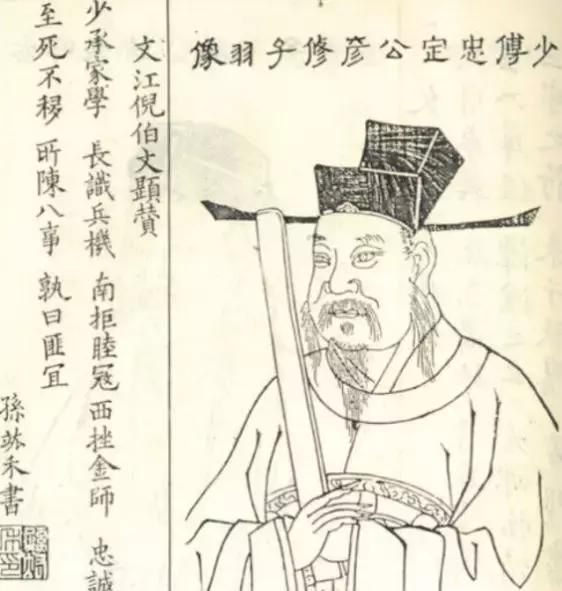 少傅忠定公彥修子羽像
文江倪伯文顯贊
少承家學 長識兵機 南拒睦冦 西挫金師 忠誠
至死不移 所陳八事 孰曰匪冝
孫 書